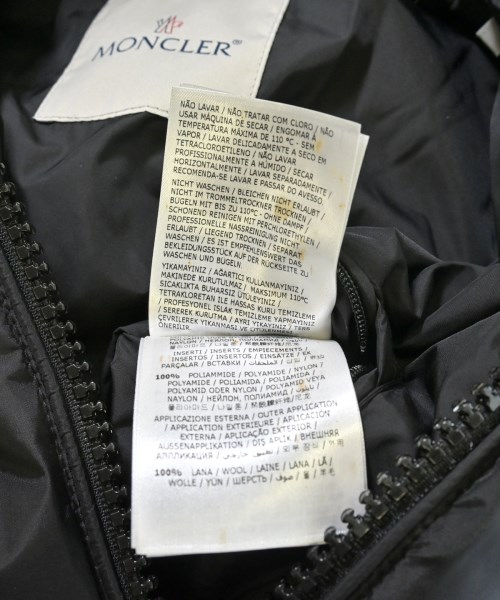 MONCLER
NÃO LAVAR / NÃO TRATAR COM CLORO / NÃO
USAR MÁQUINA DE SECAR / ENGOMAR À
TEMPERATURA MÁXIMA DE 110 ºC - SEM
VAPOR / LAVAR DELICADAMENTE A SECO EM
TETRACLOROETILENO / NÃO LAVAR
PROFISSIONALMENTE A HÚMIDO / SECAR
HORIZONTALMENTE / LAVAR SEPARADAMENTE /
RECOMENDA-SE LAVAR E PASSAR DO AVESSO.
NICHT WASCHEN / BLEICHEN NICHT ERLAUBT /
NICHT IM TROMMELTROCKNER TROCKNEN /
BÜGELN MIT BIS ZU 110°C - OHNE DAMPF /
SCHONEND REINIGEN MIT PERCHLORETHYLEN /
PROFESSIONELLE NASSREINIGUNG NICHT
ERLAUBT / LIEGEND TROCKNEN / SEPARAT
WASCHEN / ES IST EMPFEHLENSWERT DAS
BEKLEIDUNGSSTÜCK AUF DER RÜCKSEITE ZU
WASCHEN UND BÜGELN.
YIKAMAYINIZ / AĞARTICI KULLANMAYINIZ /
MAKINEDE KURUTULMAZ / MAKSIMUM 110°C
SICAKLIKTA BUHARSIZ ÜTÜLEYINIZ /
TETRAKLORETAN ILE HASSAS KURU TEMIZLEME
/ PROFESYONEL ISLAK TEMIZLEME YAPMAYINIZ
/ SEREREK KURUTMA / AYRI YIKAYINIZ / TERS
ÇEVRILEREK YIKANMASI VE ÜTÜLENMESI
ÖNERILIR
INSERTI / INSERTS / EMPIECEMENTS /
INSERTOS / INSERTOS / EINSÄTZE / EK
PARÇALAR / ВСТАВКИ /
100% POLIAMMIDE / POLYAMIDE / NYLON /
POLYAMIDE / POLIAMIDA / POLIAMIDA /
POLYAMID ODER NYLON / POLYAMID VEYA
NAYLON / НЕЙЛОН, ПОЛИАМИД /
APPLICAZIONE ESTERNA / OUTER APPLICATION
/ APPLICATION EXTERIEURE / APLICACION
EXTERNA / APLICAÇÃO EXTERIOR /
AUSSENAPPLIKATION / DIŞ APLIK / ВНЕШНЯЯ
АППЛИКАЦИЯ /
100% LANA / WOOL / LAINE / LANA / LÃ /
WOLLE / YÜN / ШЕРСТЬ /